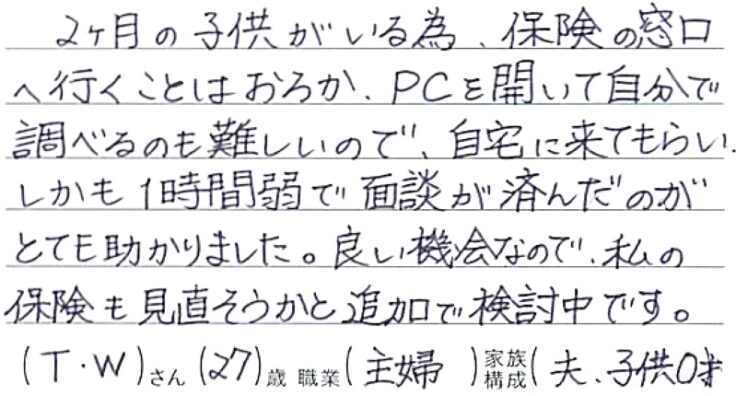 2ヶ月の子供がいる為、保険の窓口
へ行くことはおろか、PCを開いて自分で
調べるのも難しいので、自宅に来てもらい、
しかも1時間弱で面談が済んだのが
とても助かりました。良い機会なので、私の
保険も見直そうかと追加で検討中です。
(T・W)さん(27)歳 職業(主婦 )家族構成(夫、子供0才